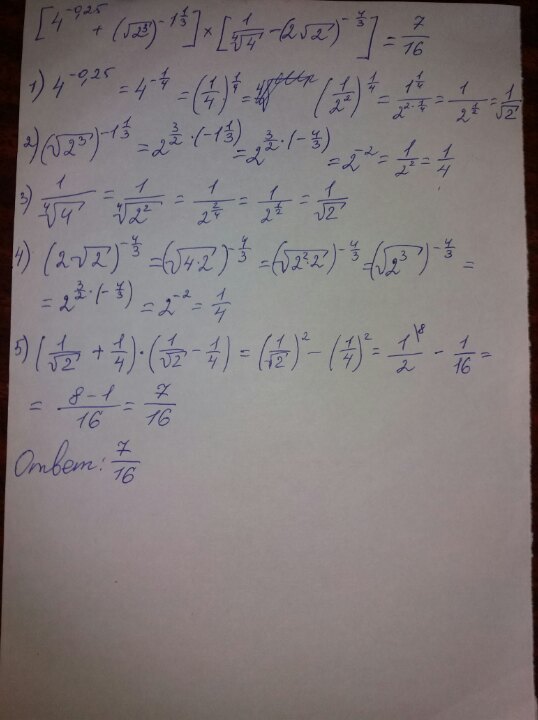 [4^{-0,25} + (√2³)^{-1 1/3}] × [1/⁴√4 - (2√2)^{-4/3}] = 7/16
1) 4^{-0,25} = 4^{-1/4} = (1/4)^{1/4} = (1/2²)^{1/4} = 1^{1/4}/2^{2·1/4} = 1/2^{1/2} = 1/√2
2) (√2³)^{-1 1/3} = 2^{3/2·(-1 1/3)} = 2^{3/2·(-4/3)} = 2^{-2} = 1/2² = 1/4
3) 1/⁴√4 = 1/⁴√2² = 1/2^{2/4} = 1/2^{1/2} = 1/√2
4) (2√2)^{-4/3} = (√4·2)^{-4/3} = (√2²·2)^{-4/3} = (√2³)^{-4/3} =
= 2^{3/2·(-4/3)} = 2^{-2} = 1/4
5) (1/√2 + 1/4)·(1/√2 - 1/4) = (1/√2)² - (1/4)² = 1\8/2 - 1/16 =
= 8-1/16 = 7/16
Ответ: 7/16